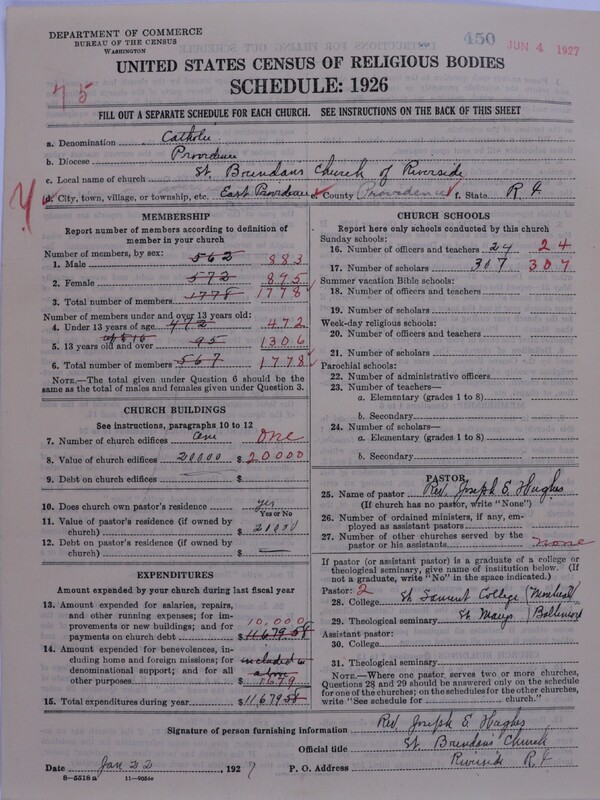 DEPARTMENT OF COMMERCE
BUREAU OF THE CENSUS
WASHINGTON
450
JUN 4 1927
UNITED STATES CENSUS OF RELIGIOUS BODIES
SCHEDULE: 1926
75
FILL OUT A SEPARATE SCHEDULE FOR EACH CHURCH. SEE INSTRUCTIONS ON THE BACK OF THIS SHEET
a. Denomination Catholic
b. Diocese Providence
c. Local name of church St. Brendans Church of Riverside
d. City, town, village, or township, etc. East Providence e. County Providence f. State R I
MEMBERSHIP
Report number of members according to definition of member in your church
Number of members, by sex:
1. Male 562 883
2. Female 572 895
3. Total number of members 1778 1778
Number of members under and over 13 years old:
4. Under 13 years of age 472 472
5. 13 years old and over 95 1306
6. Total number of members 567 1778
NOTE.—The total given under Question 6 should be the same as the total of males and females given under Question 3.
CHURCH BUILDINGS
See instructions, paragraphs 10 to 12
7. Number of church edifices One One
8. Value of church edifices 20000 $ 20000
9. Debt on church edifices $
10. Does church own pastor's residence yes
Yes or No
11. Value of pastor's residence (if owned by church) $
12. Debt on pastor's residence (if owned by church) $ —
EXPENDITURES
Amount expended by your church during last fiscal year
13. Amount expended for salaries, repairs, and other running expenses; for improvements or new buildings; and for payments on church debt 10,000 $ 11679 58
14. Amount expended for benevolences, including home and foreign missions; for denominational support; and for all other purposes included in above $ 1679
15. Total expenditures during year $ 11679 58
CHURCH SCHOOLS
Report here only schools conducted by this church
Sunday schools:
16. Number of officers and teachers 24 24
17. Number of scholars 307 307
Summer vacation Bible schools:
18. Number of officers and teachers
19. Number of scholars
Week-day religious schools:
20. Number of officers and teachers
21. Number of scholars
Parochial schools:
22. Number of administrative officers
23. Number of teachers—
a. Elementary (grades 1 to 8)
b. Secondary
24. Number of scholars—
a. Elementary (grades 1 to 8)
b. Secondary
PASTOR
25. Name of pastor Rev. Joseph E Hughes
(If church has no pastor, write "None")
26. Number of ordained ministers, if any, employed as assistant pastors
27. Number of other churches served by the pastor or his assistants none
If pastor (or assistant pastor) is a graduate of a college or theological seminary, give name of institution below. (If not a graduate, write "No" in the space indicated.)
Pastor: 2
28. College St Laurent College (Montreal)
29. Theological seminary St Marys (Baltimore)
Assistant pastor:
30. College
31. Theological seminary
NOTE.—Where one pastor serves two or more churches, Questions 28 and 29 should be answered only on the schedule for one of the churches; on the schedules for the other churches, write "See schedule for church."
Signature of person furnishing information Rev Joseph E Hughes
Official title St Brendans Church
Date Jan 22 1927 P. O. Address Riverside R I
8—5518 a 11—9056e